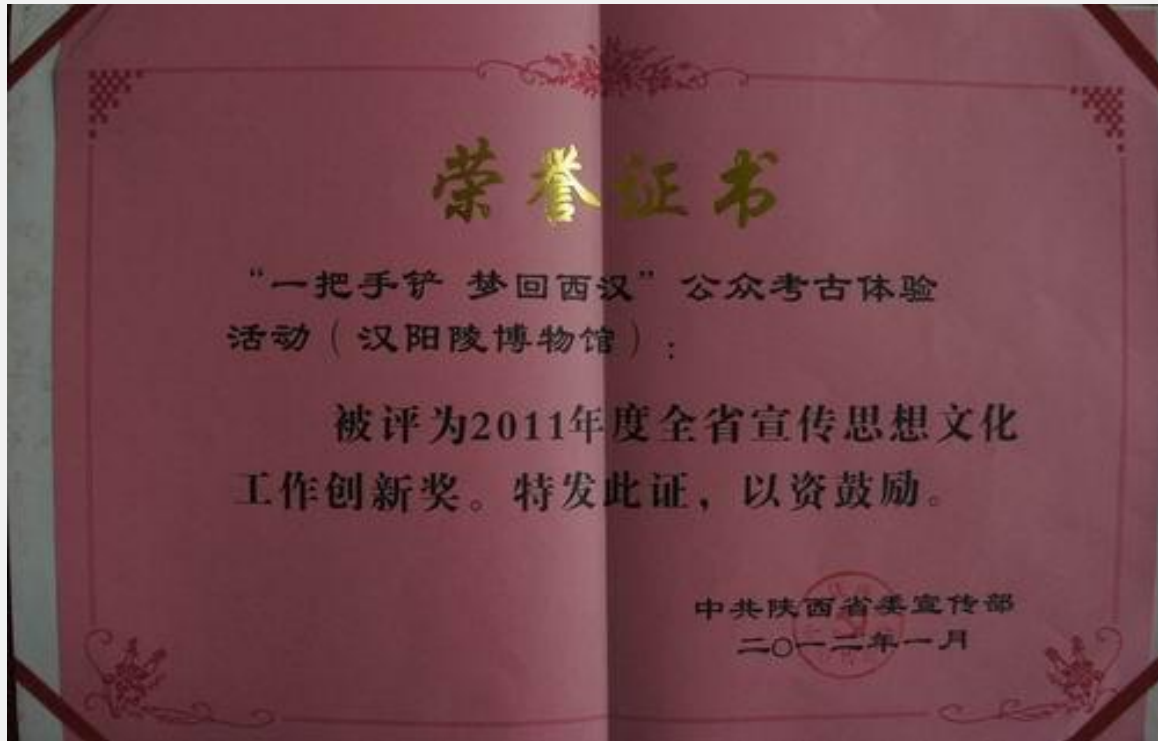 荣誉证书
“一把手铲 梦回西汉”公众考古体验
活动（汉阳陵博物馆）：
被评为2011年度全省宣传思想文化
工作创新奖。特发此证，以资鼓励。
中共陕西省委宣传部
二〇一二年一月